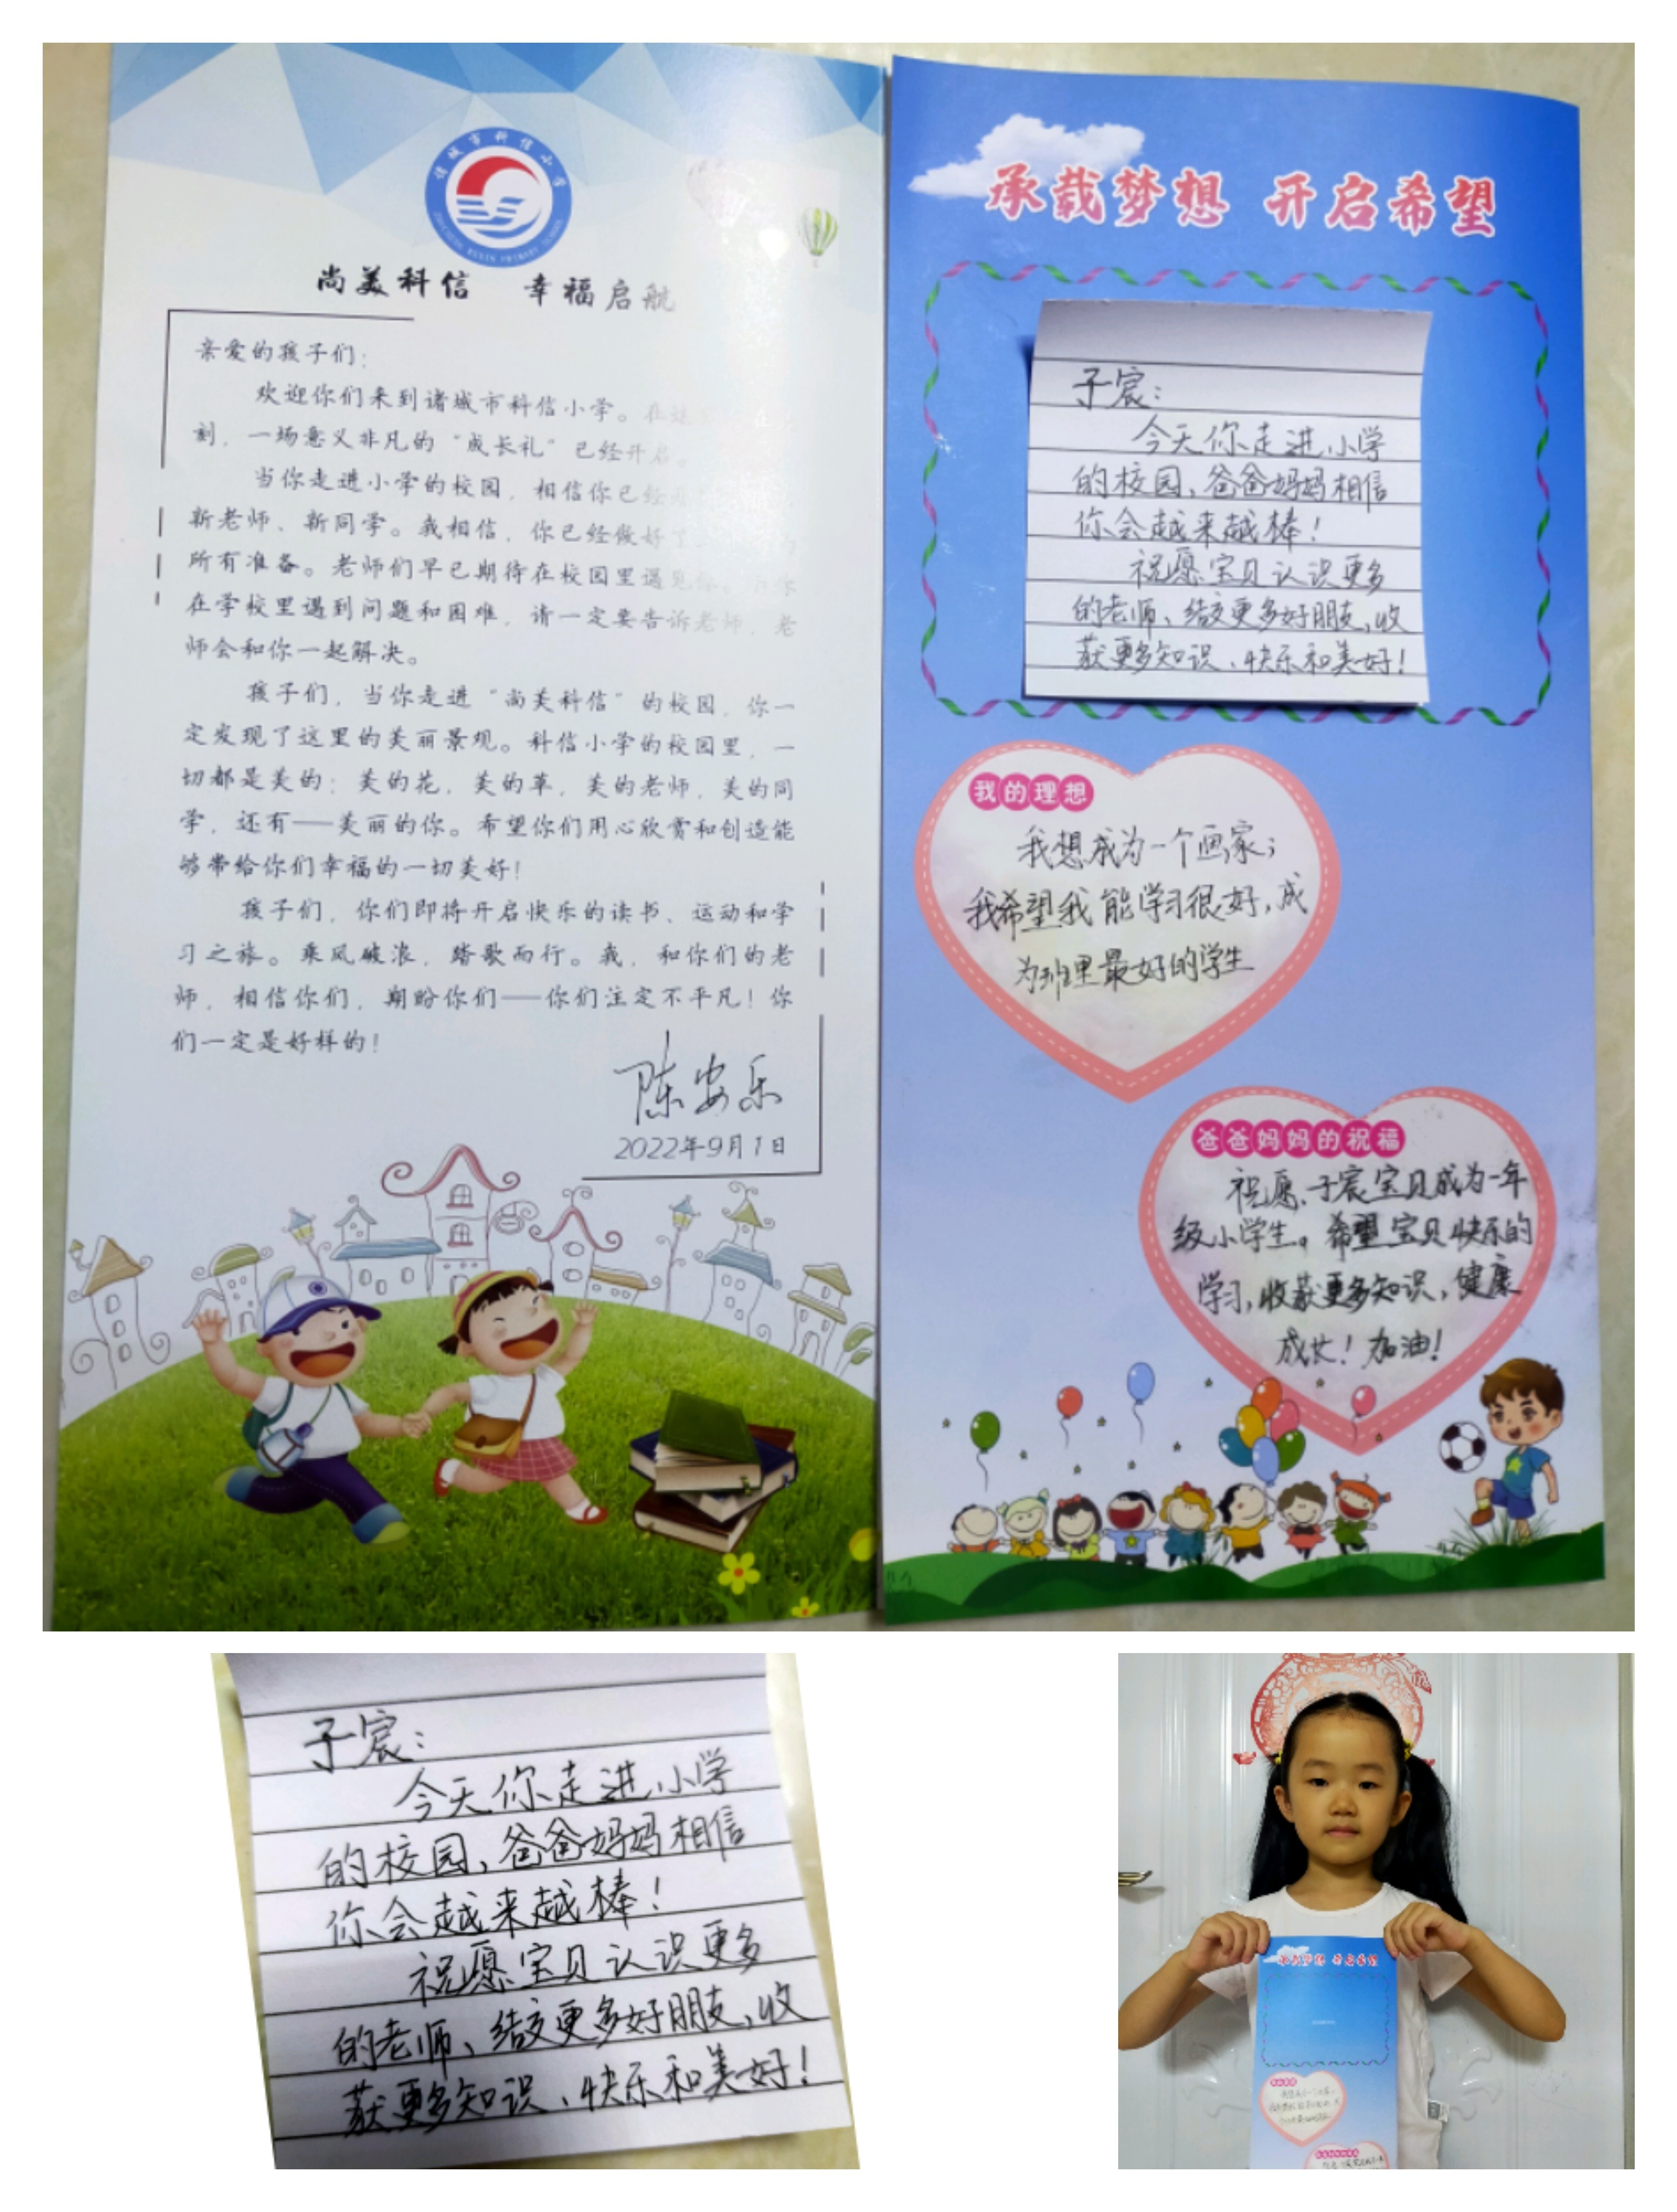 诸城市科信小学
尚美科信 幸福启航
亲爱的孩子们：
欢迎你们来到诸城市科信小学。在这
刻，一场意义非凡的“成长礼”已经开启。
当你走进小学的校园，相信你已经
新老师、新同学。我相信，你已经做好了
所有准备。老师们早已期待在校园里遇见你。
在学校里遇到问题和困难，请一定要告诉老师，老
师会和你一起解决。
孩子们，当你走进“尚美科信”的校园，你一
定发现了这里的美丽景观。科信小学的校园里，一
切都是美的：美的花，美的草，美的老师，美的同
学，还有——美丽的你。希望你们用心欣赏和创造能
够带给你们幸福的一切美好！
孩子们，你们即将开启快乐的读书、运动和学
习之旅。乘风破浪，踏歌而行。我，和你们的老
师，相信你们，期盼你们——你们注定不平凡！你
们一定是好样的！
陈安乐
2022年9月1日
承载梦想 开启希望
子宸：
今天你走进小学
的校园，爸爸妈妈相信
你会越来越棒！
祝愿宝贝认识更多
的老师、结交更多好朋友，收
获更多知识、快乐和美好！
我的理想
我想成为一个画家；
我希望我能学习很好，成
为班里最好的学生
爸爸妈妈的祝福
祝愿子宸宝贝成为一年
级小学生。希望宝贝快乐的
学习，收获更多知识，健康
成长！加油！
子宸：
今天你走进小学
的校园，爸爸妈妈相信
你会越来越棒！
祝愿宝贝认识更多
的老师、结交更多好朋友，收
获更多知识、快乐和美好！
承载梦想 开启希望